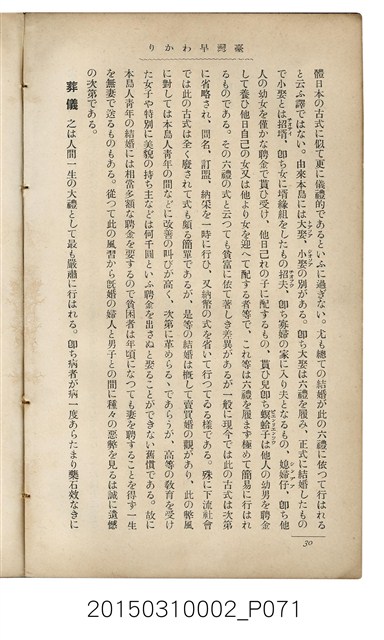 臺灣早わかり
體日本の古式に似て更に儀禮的であるといふに過ぎない。尤も總ての結婚が此の六禮に依つて行はれる
と云ふ譯ではない。由來本島には大娶、小娶の別がある。卽ち大娶は六禮を履み、正式に結婚したもの
で小娶とは招壻、卽ち女に壻緣組をしたもの招夫、卽ち寡婦の家に入り夫となるもの、媳婦仔、卽ち他
人の幼女を僅かな聘金で貰ひ受け、他日己れの子に配するもの、貰ひ兒卽ち螟蛉子は他人の幼男を聘金
して養ひ他日自己の女又は他より女を迎へて配する者等で、これ等は六禮を履まず極めて簡易に行はれ
るものである。その六禮の式と云つても貧富に依て著しき差異があるが一般に現今では此の古式は次第
に省略され、問名、訂盟、納采を一時に行ひ、又納幣の式を省いて行つてゐる樣である。殊に下流社會
では此の古式は全く廢されて式も頗る簡單であるが、是等の結婚は槪して賣買婚の觀があり、此の弊風
に對しては本島人靑年の間などに改善の叫びが高く、次第に革められるヽであらうが、高等の敎育を受け
た女子や特別に美貌の持ち主などは何千圓といふ聘金を出さぬと娶ることができない舊慣である。故に
本島人靑年の結婚には相當多額な聘金を要するので貧困者は年頃になつても妻を聘することを得ず一生
を無妻で送るものもある。從つて此の風習から旣婚の婦人と男子との間に種々の惡弊を見るは誠に遺憾
の次第である。
葬儀 之は人間一生の大禮として最も嚴肅に行はれる。卽ち病者が病一度あらたまり藥石效なきに
30
20150310002_P071